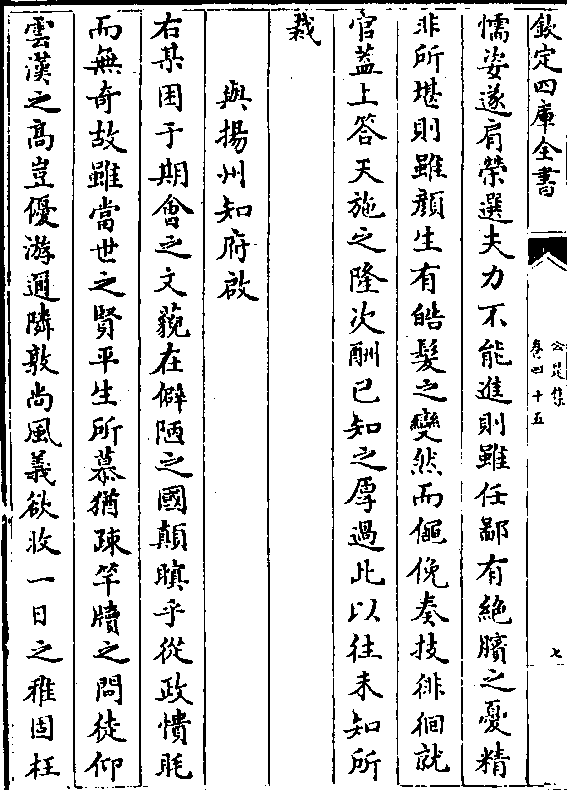 欽定四庫全書
公是集
卷四十五
七
懦姿遂肩榮選夫力不能進則雖任鄙有絶臏之憂精
非所堪則雖顔生有皓髮之變然而僶俛奏技徘徊就
官蓋上答天施之隆次酬已知之厚過此以往未知所
裁
與揚州知府啟
右某困于期會之文藐在僻陋之國顛瞑乎從政憒眊
而無奇故雖當世之賢平生所慕猶疎竿牘之問徒仰
雲漢之髙豈優游邇隣敦尚風義欲收一日之稚固枉